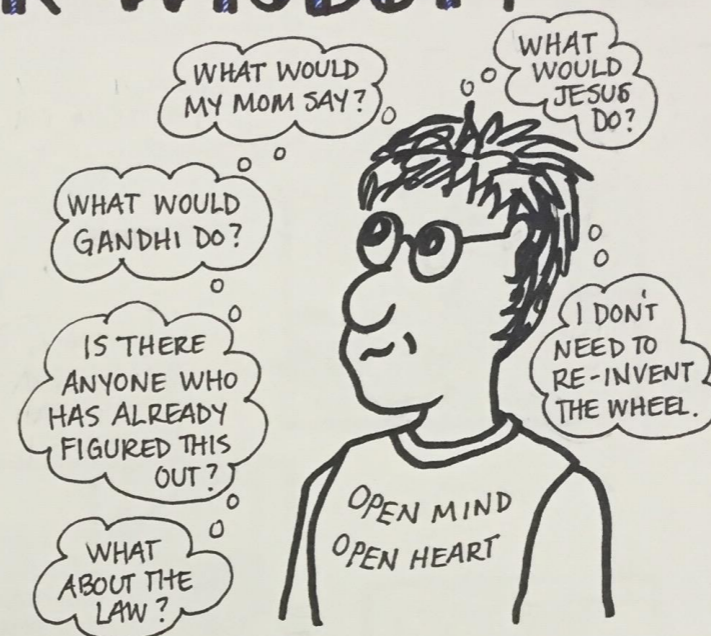 WHAT WOULD
MY MOM SAY?
WHAT
WOULD
JESUS
DO?
WHAT WOULD
GANDHI DO?
IS THERE
ANYONE WHO
HAS ALREADY
FIGURED THIS
OUT?
I DON'T
NEED TO
RE-INVENT
THE WHEEL.
WHAT
ABOUT THE
LAW?
OPEN MIND
OPEN HEART